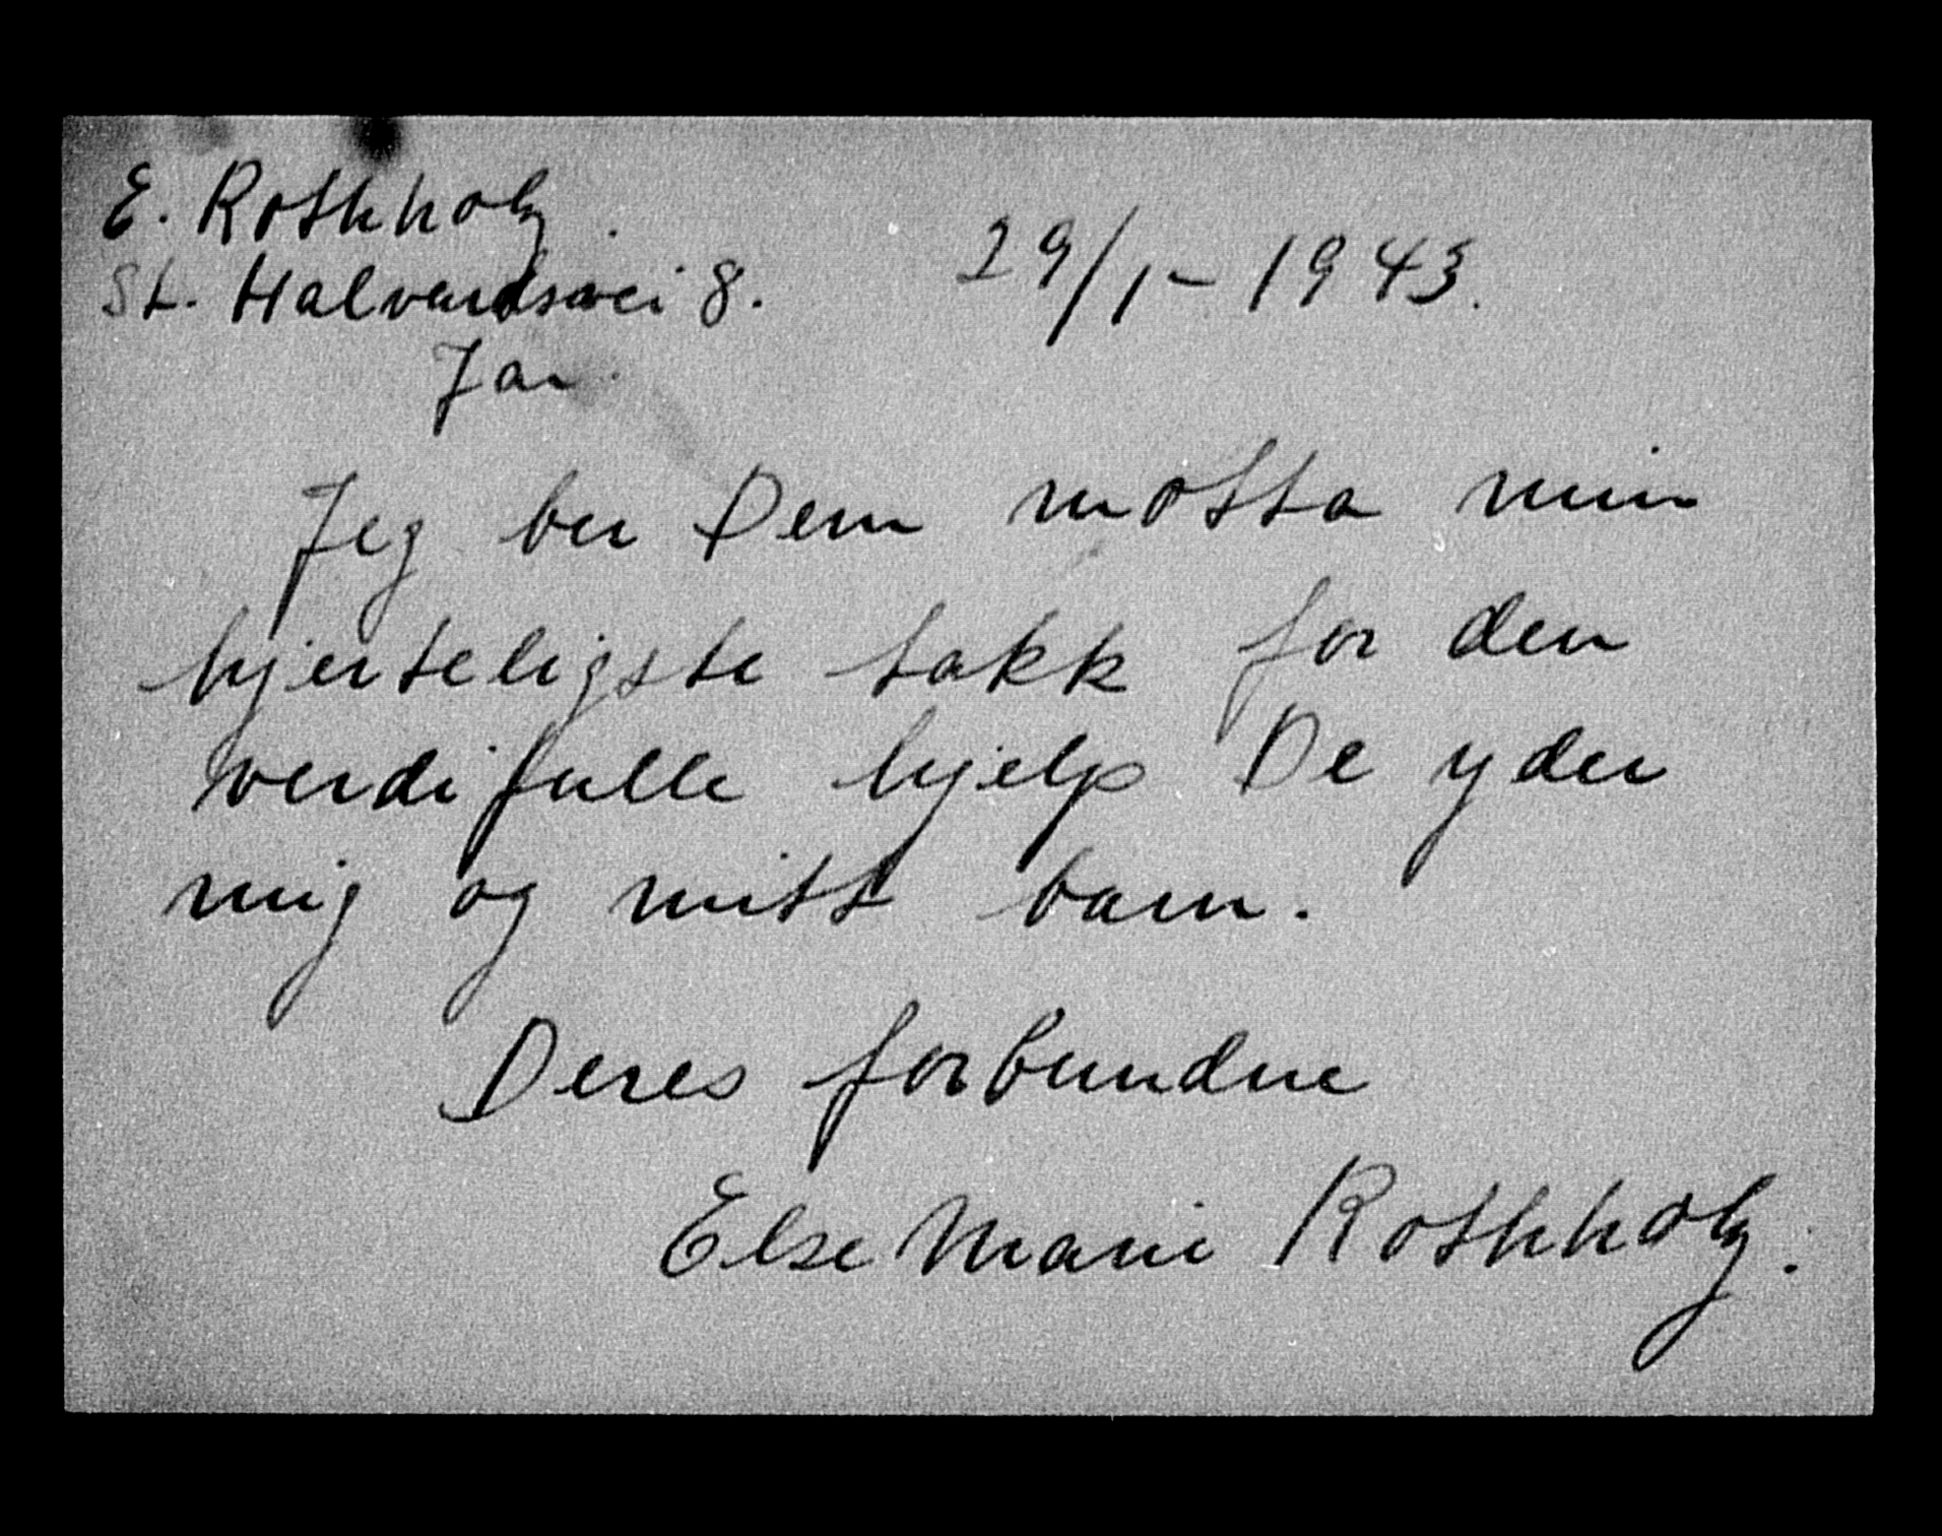 E. Rothholz.
St. Halvardsvei 8. 29/1-1943.
Jar.
Jeg ber Dem motta min
hjerteligste takk for den
verdifulle hjelp De yder
mig og mitt barn.
Deres forbundne
Else Marie Rothholz.